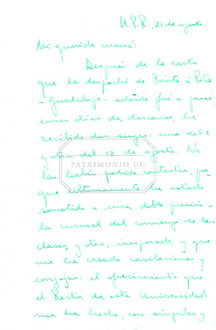 U.P.R., 21 de agosto.
Mi querida mamá:
Después de la carta
que le despaché de Pointe à Pitre
- Guadalupe - adonde fui a pasar
unos días de descanso, he
recibido dos suyas: una del 2
y otra del 12 de agosto. No
las había podido contestar, por
que últimamente he estado
sometido a una doble presión -
la normal del comienzo de las
clases, y otra, inesperada y que
me ha creado cavilaciones y
congojas: el ofrecimiento que
el Rector de esta Universidad
me ha hecho, con singular y
PATRIMONIO UC